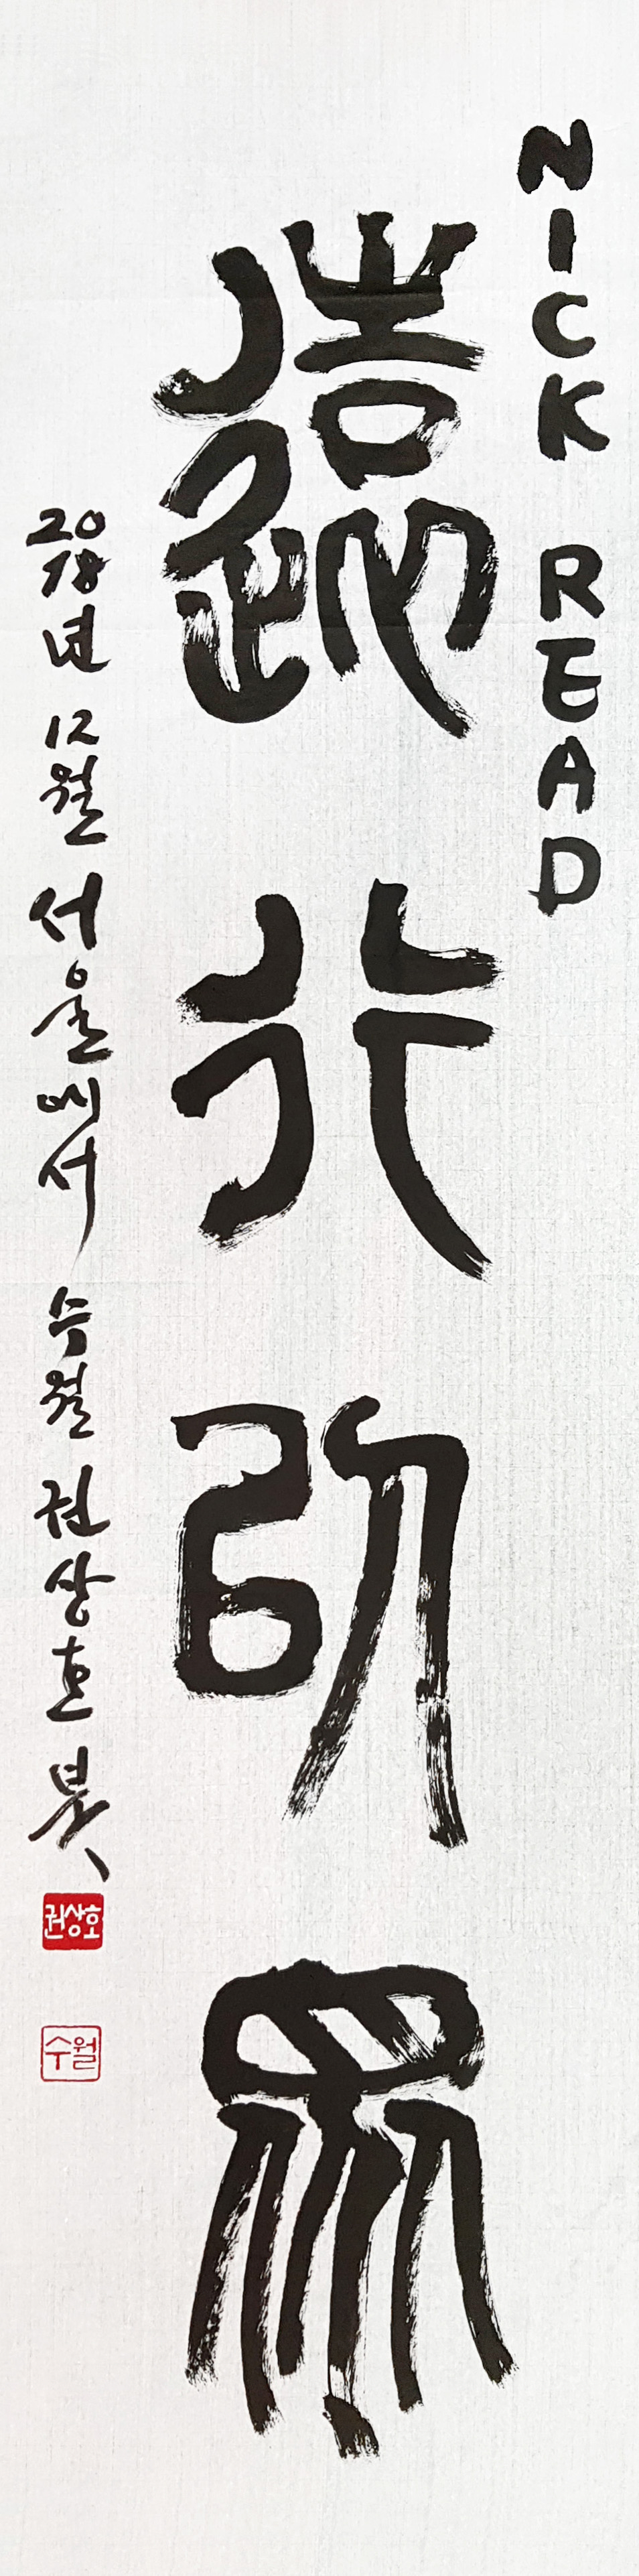 NICK READ
遠行以衆
2018년 12월 서울에서 수월 권상호 붓
권상호
수월